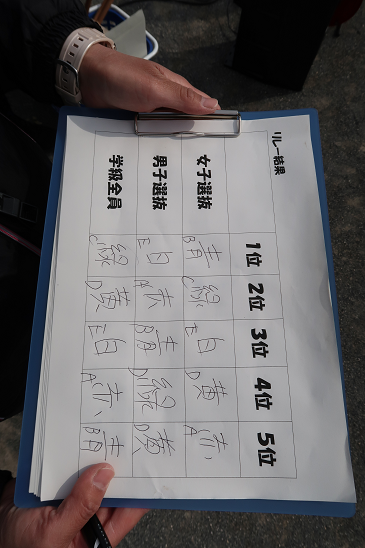 リレー結果
1位 2位 3位 4位 5位
女子選抜 青 緑 白 黄 赤
B C E D A
男子選抜 白 赤 青 緑 黄
E A B D
学級全員 緑 黄 白 赤 青
C D E A B